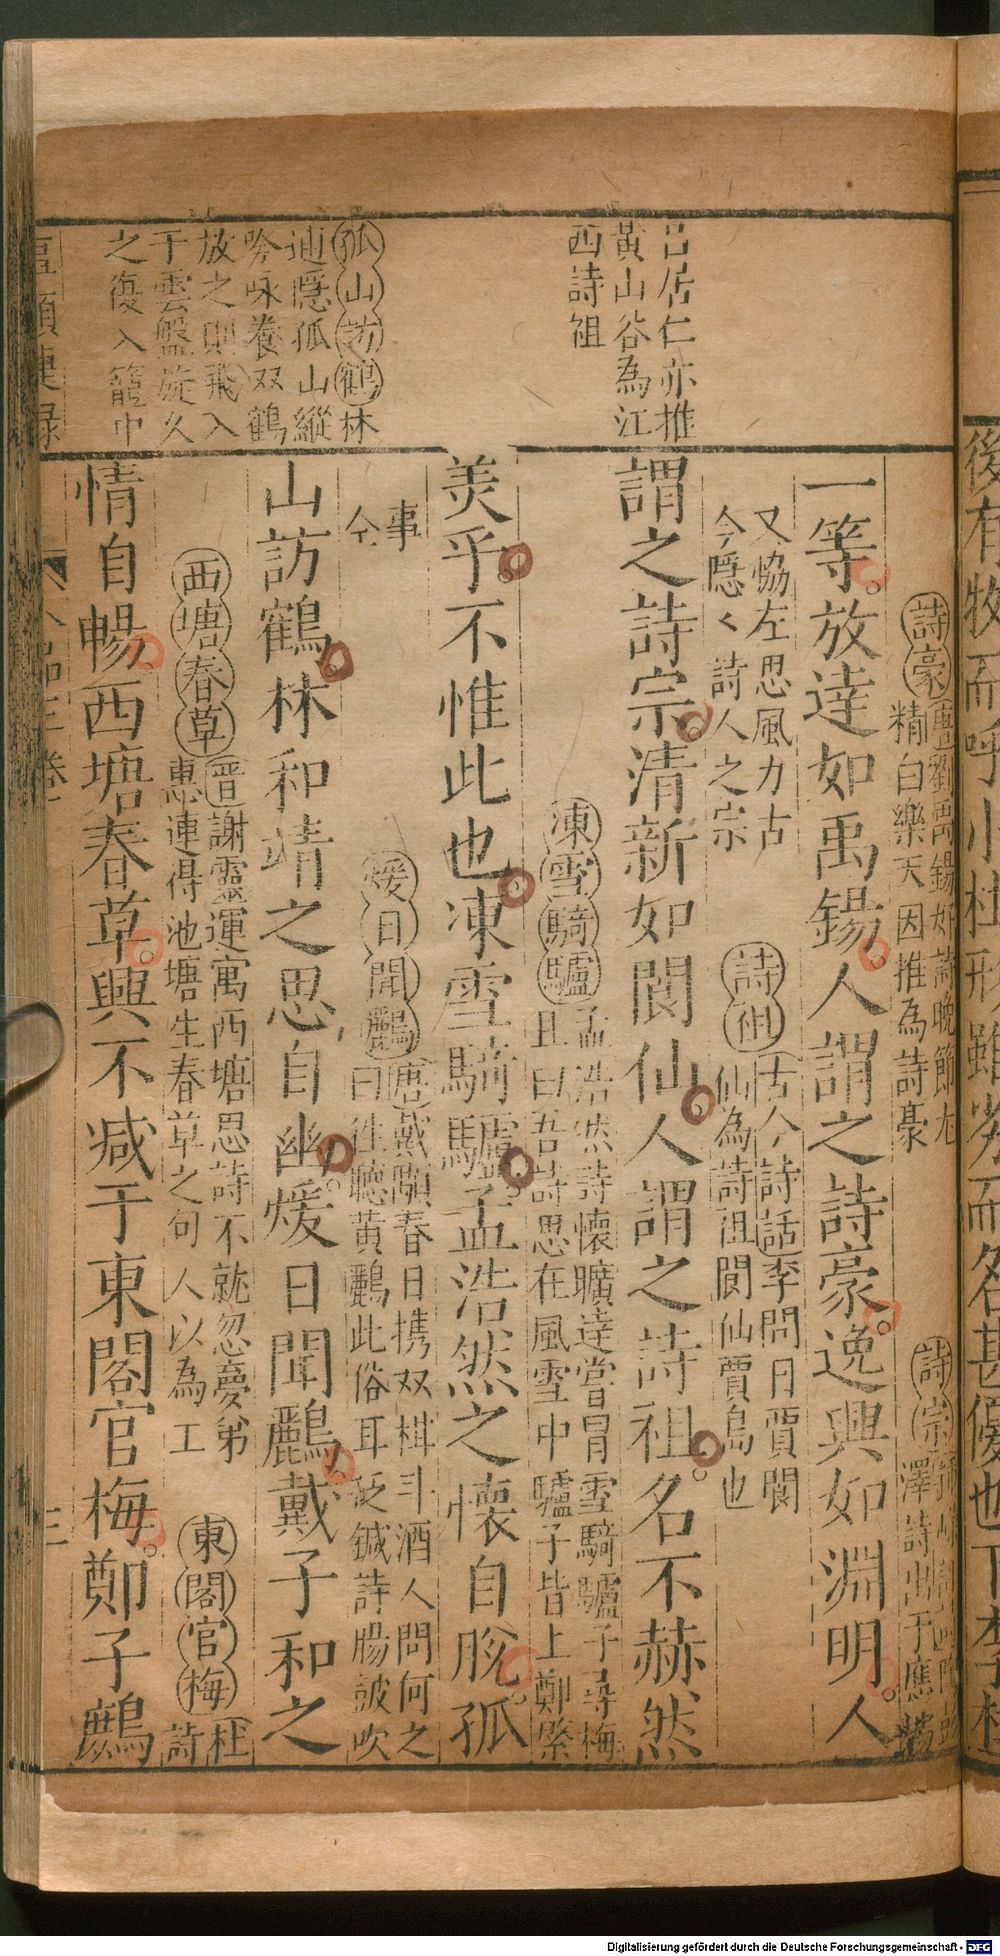 呂居仁亦推
黃山谷為江
西詩祖
孤山訪鶴林
逋隠孤山縱
吟咏養双鶴
放之則飛入
于雲盤旋久
之復入籠中
詩豪唐劉禹錫好詩晚節尤
精白樂天因推為詩豪
詩宗
澤詩出于應
一等放達如禹錫人謂之詩豪逸興如淵明人
又恊左思風力古
今隠く詩人之宗
詩祖古今詩話李問曰賈閬
仙為詩祖閬仙賈島也
謂之詩宗清新如閬仙人謂之詩祖名不赫然
凍雪騎驢孟浩然詩懷曠達嘗冒雪騎驢子尋梅
且曰吾詩思在風雪中驢子背上鄭綮
美乎不惟此也凍雪騎驢孟浩然之懷自脫孤
事
仝
煖日聞鸝唐戴顒春日携双柑斗酒人問何之
曰徃聽黃鸝此俗耳砭鍼詩腸皷吹
山訪鶴林和靖之思自幽煖日聞鸝戴子和之
西塘春草晋謝靈運寓西塘思詩不就忽夢弟
惠連得池塘生春草之句人以為工
東閣官梅杜
詩
情自暢西塘春草興不减于東閣官梅鄭子鷓
三
後有牧而呼小杜形雖劣而名甚優也下李杜
Digitalisierung gefördert durch die Deutsche Forschungsgemeinschaft - DFG